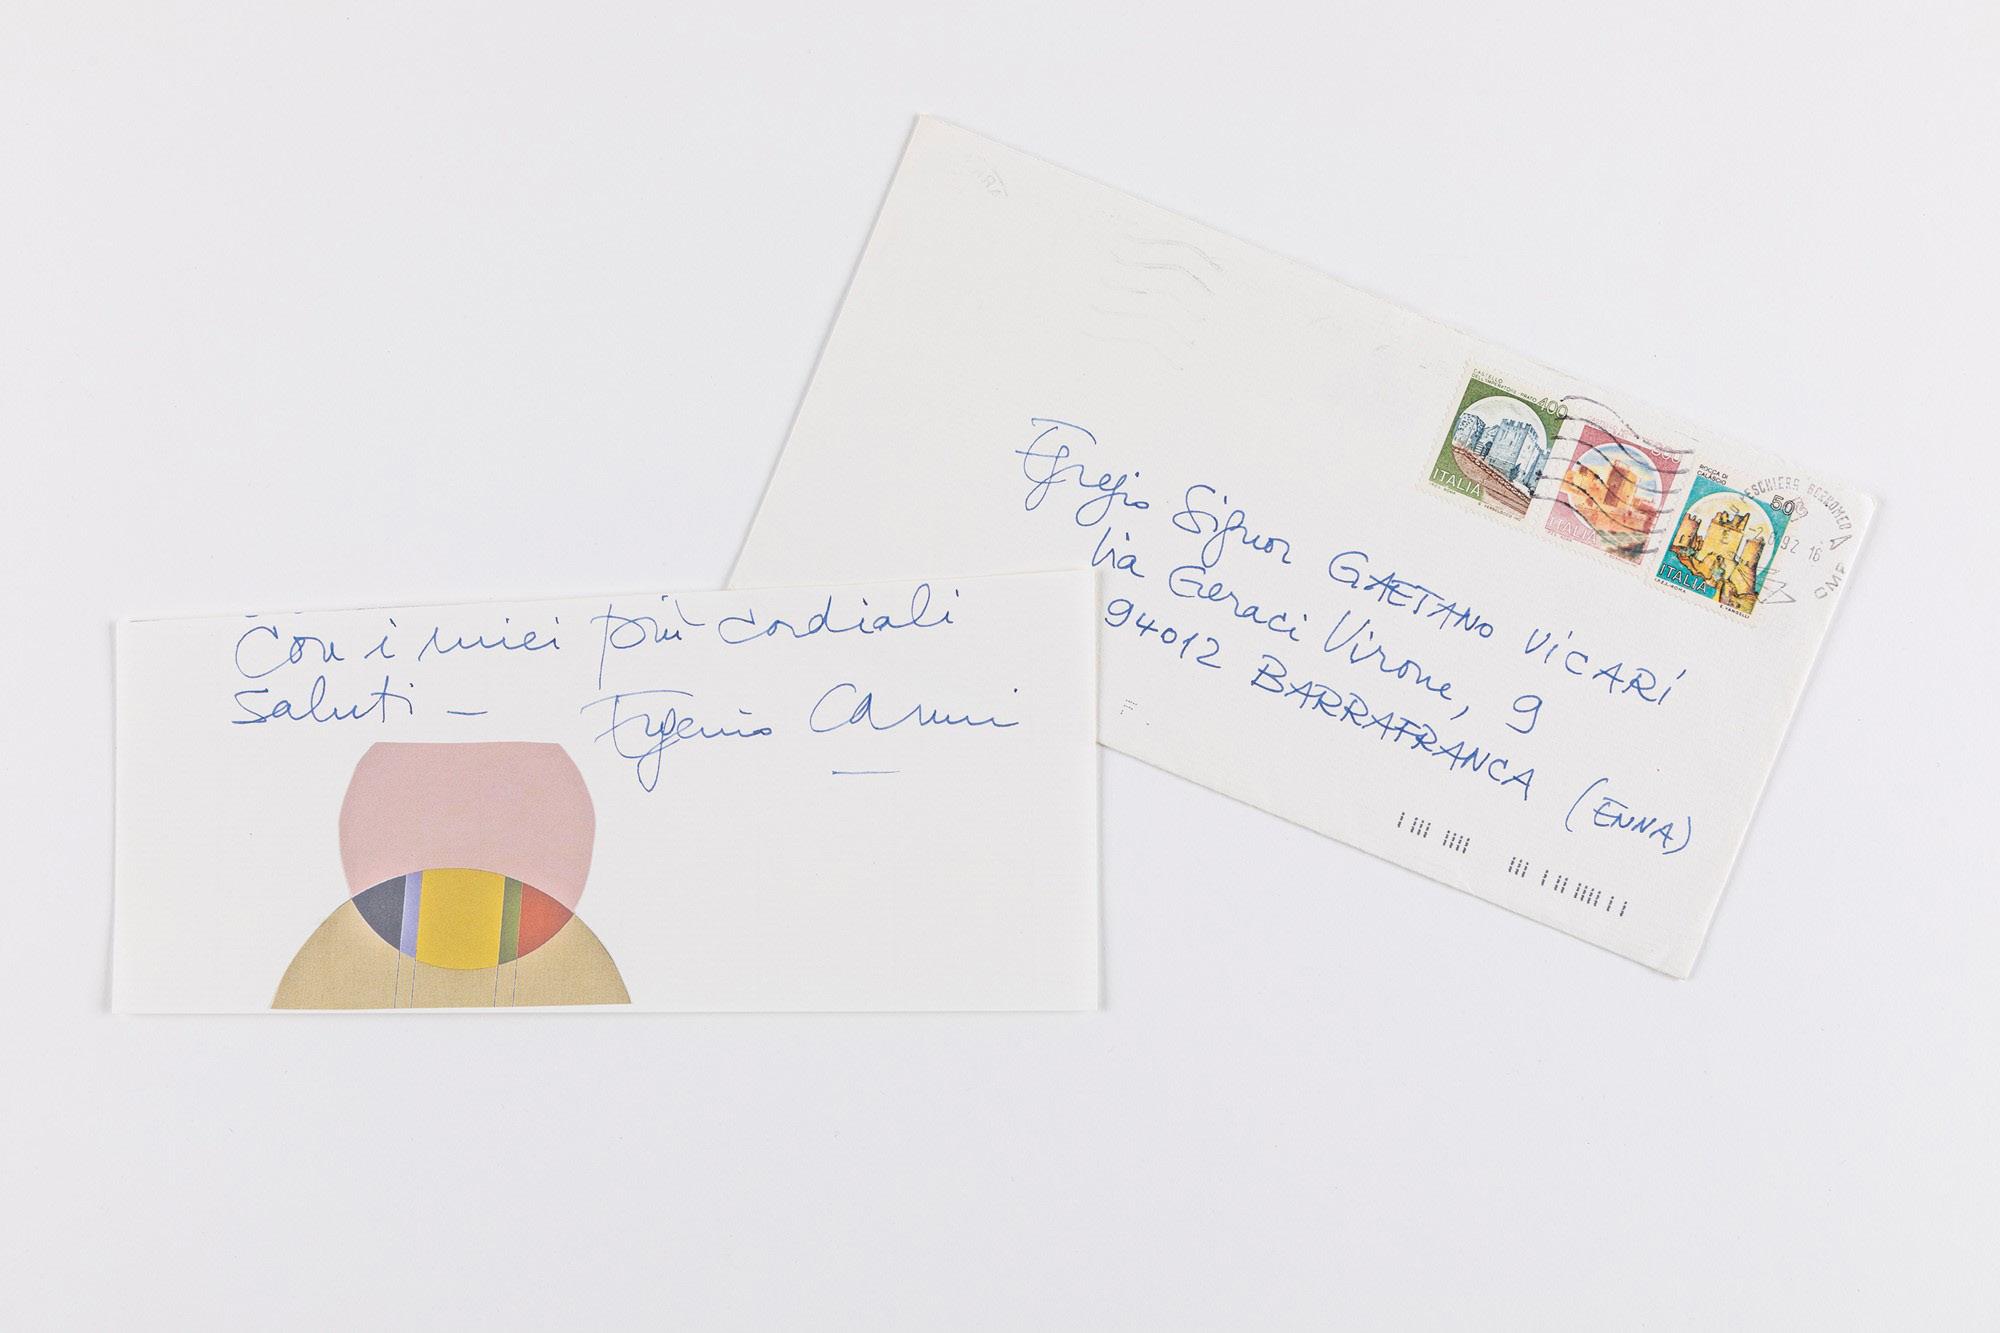 Con i miei più cordiali
saluti – Eugenio Carmi
Egregio Signor GAETANO VICARÌ
Via Geraci Virone, 9
94012 BARRAFRANCA (ENNA)
CASTELLO
DELL'IMPERATORE PRATO 400
ITALIA
ITALIA
ROCCA DI
CALASCIO
50
ITALIA
I.P.Z.S. ROMA E. VANGELLI
PESCHIERA BORROMEO
92 16